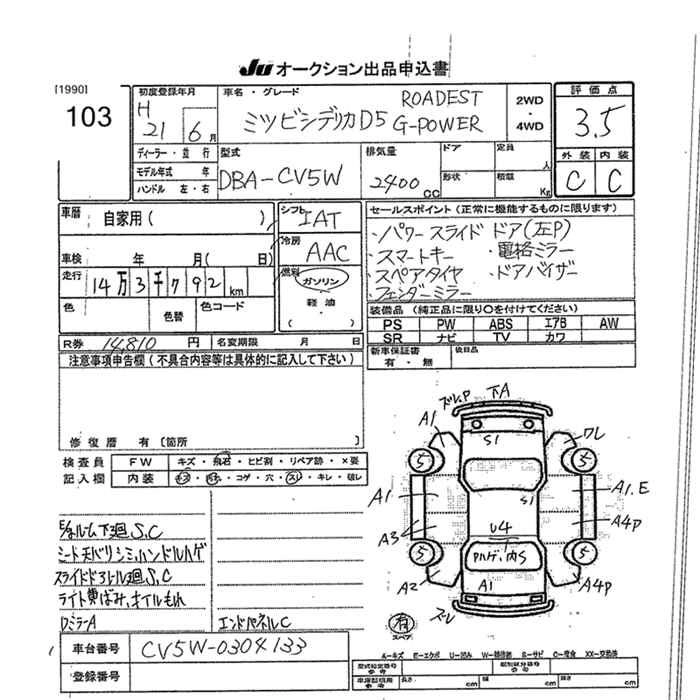 JU オークション出品申込書
[1990]
103
初度登録年月
H
21 6月
車名・グレード
ROADEST
ミツビシデリカD5 G-POWER
2WD
・
4WD
評価点
3.5
外装 内装
C C
ディーラー・並行
モデル年式 年
ハンドル 左・右
型式
DBA-CV5W
排気量
2400cc
ドア
形状
定員
人
積載
Kg
車歴 自家用( )
車検 年 月( 日)
走行 14万3千792km
色 色替 色コード
シフト IAT
冷房 AAC
燃料
ガソリン
軽油
( )
セールスポイント(正常に機能するものに限ります)
・パワースライドドア(左P)
・スマートキー ・電格ミラー
・スペアタイヤ ・ドアバイザー
・フェンダーミラー
装備品(純正品に限り○を付けてください)
PS PW ABS エアB AW
SR ナビ TV カワ
R券 14,810円 名変期限 月 日
新車保証書
有・無
後日品
注意事項申告欄(不具合内容等は具体的に記入して下さい)
修復歴 有〔箇所 〕
検査員
記入欄
FW キズ・飛石・ヒビ割・リペア跡・×要
内装 ・コゲ・穴・スレ・キレ・破レ
下廻S,C
シート天バリシミ,ハンドルハゲ
スライドドアレール廻S,C
ライト黄ばみ,オイルもれ
DミラーA
エンドパネルC
ズレ,P
下A
A1
S1
ワレ
5
5
A1
S1
A1.E
A3
U4
A4P
5
5
内S
A2
A1
A4P
ズレ
有
スペア
車台番号 CV5W-0304133
登録番号
A-キズ E-エクボ U-凹み W-補修跡 S-サビ C-腐食 XX-交換済
型式指定番号
参考
類別区分番号
参考
車庫証明用
参考
長さ cm
幅 cm
高さ cm